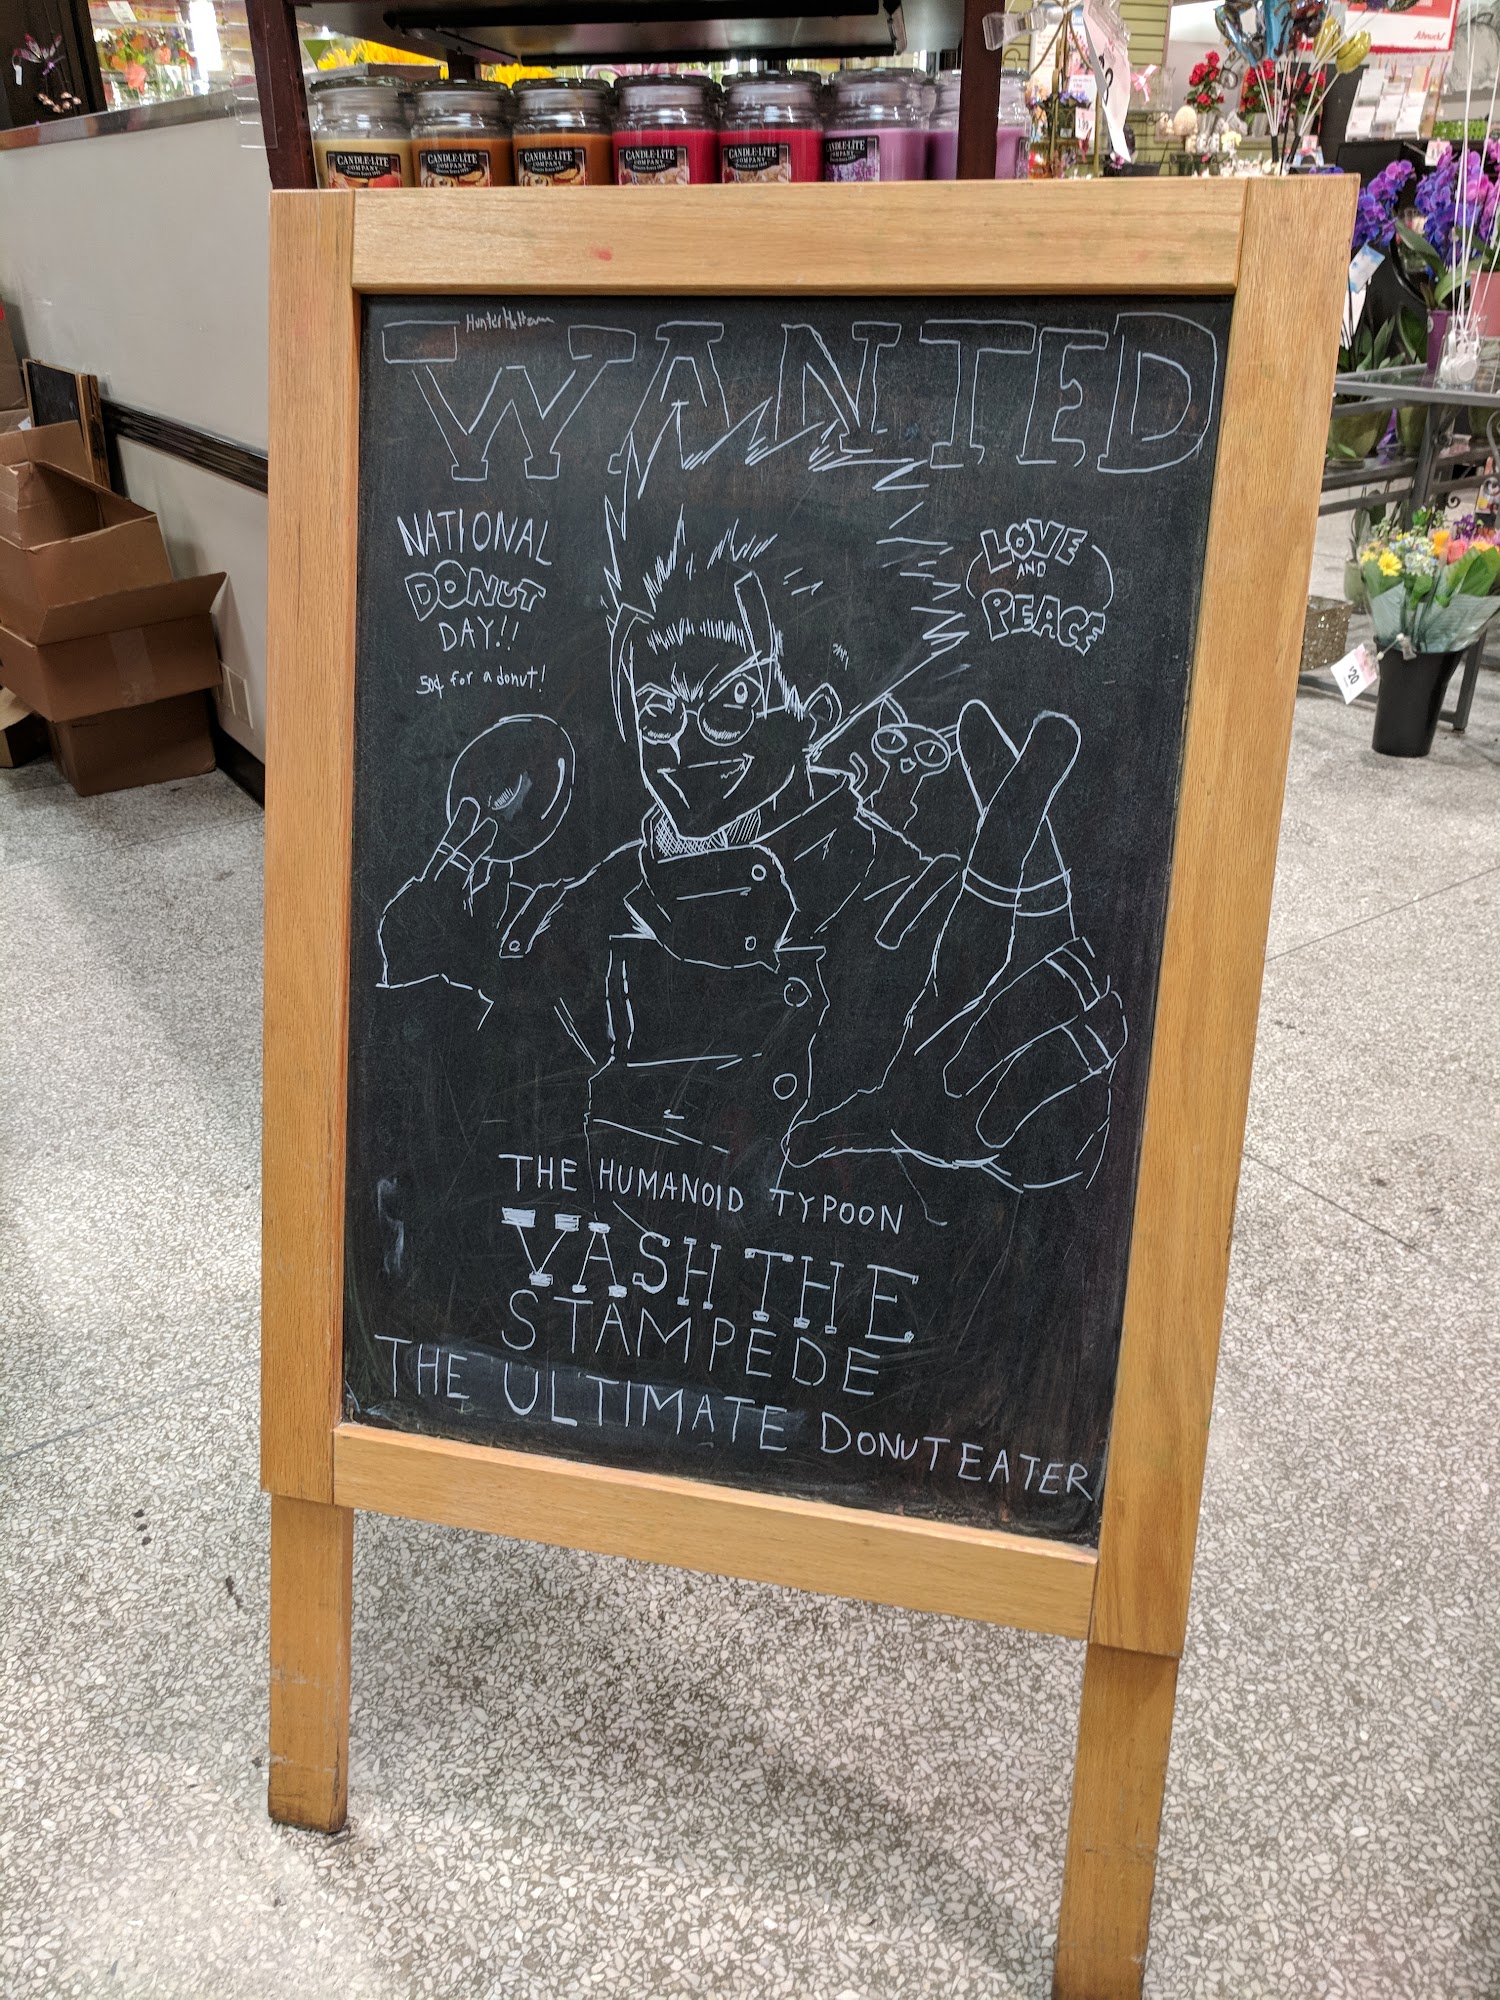 Schnucks
CANDLE-LITE
COMPANY
CANDLE-LITE
COMPANY
CANDLE-LITE
COMPANY
CANDLE-LITE
COMPANY
CANDLE-LITE
COMPANY
CANDLE-LITE
Hunter
WANTED
NATIONAL
DONUT
DAY!!
50¢ for a donut!
LOVE
AND
PEACE
$20
THE HUMANOID TYPOON
VASH THE
STAMPEDE
THE ULTIMATE DONUT EATER